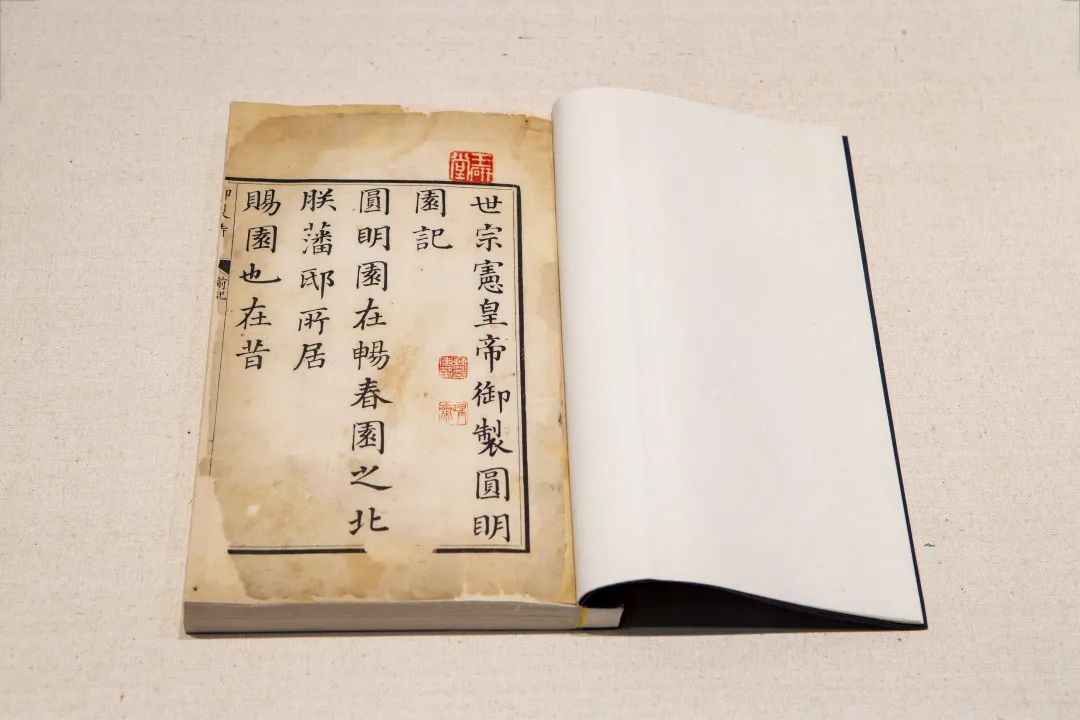 世宗憲皇帝御製圓明
園記
圓明園在暢春園之北
朕藩邸所居
賜園也在昔
前記